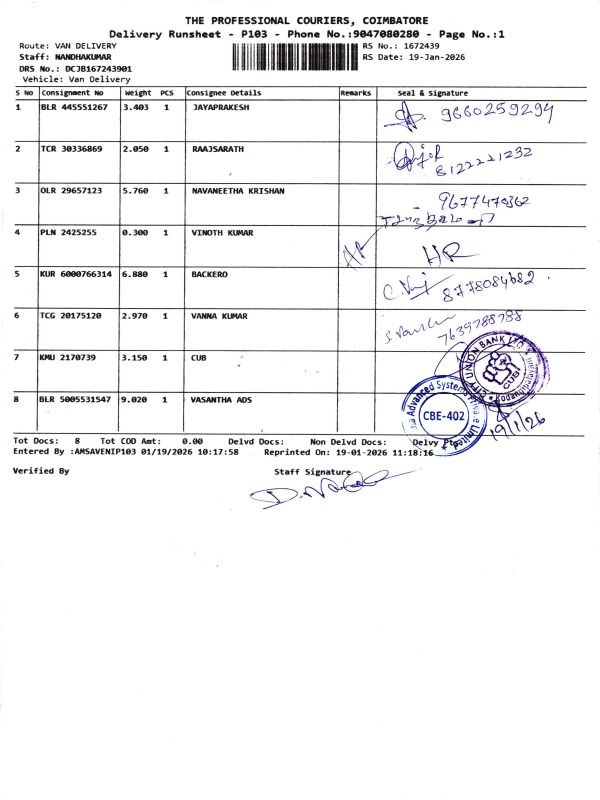 THE PROFESSIONAL COURIERS, COIMBATORE
Delivery Runsheet - P103 - Phone No.:9047080280 - Page No.:1
Route: VAN DELIVERY
RS No.: 1672439
Staff: NANDHAKUMAR
RS Date: 19-Jan-2026
DRS No.: DCJB167243901
Vehicle: Van Delivery
S No Consignment No Weight PCS Consignee Details Remarks Seal & Signature
1 BLR 445551267 3.403 1 JAYAPRAKESH 9660259294
2 TCR 30336869 2.050 1 RAAJSARATH 8122221232
3 OLR 29657123 5.760 1 NAVANEETHA KRISHAN
4 PLN 2425255 0.300 1 VINOTH KUMAR HR HR
5 KUR 6000766314 6.880 1 BACKERO 8778084682
6 TCG 20175120 2.970 1 VANNA KUMAR 7639788788
7 KMU 2170739 3.150 1 CUB
CITY UNION BANK LTD
CUB
8 BLR 5005531547 9.020 1 VASANTHA ADS
Advanced Systems Private Limited
CBE-402
19/1/26
Tot Docs: 8 Tot COD Amt: 0.00 Delvd Docs: Non Delvd Docs: Delvy
Entered By :AMSAVENIP103 01/19/2026 10:17:58 Reprinted On: 19-01-2026 11:18:16
Verified By
Staff Signature